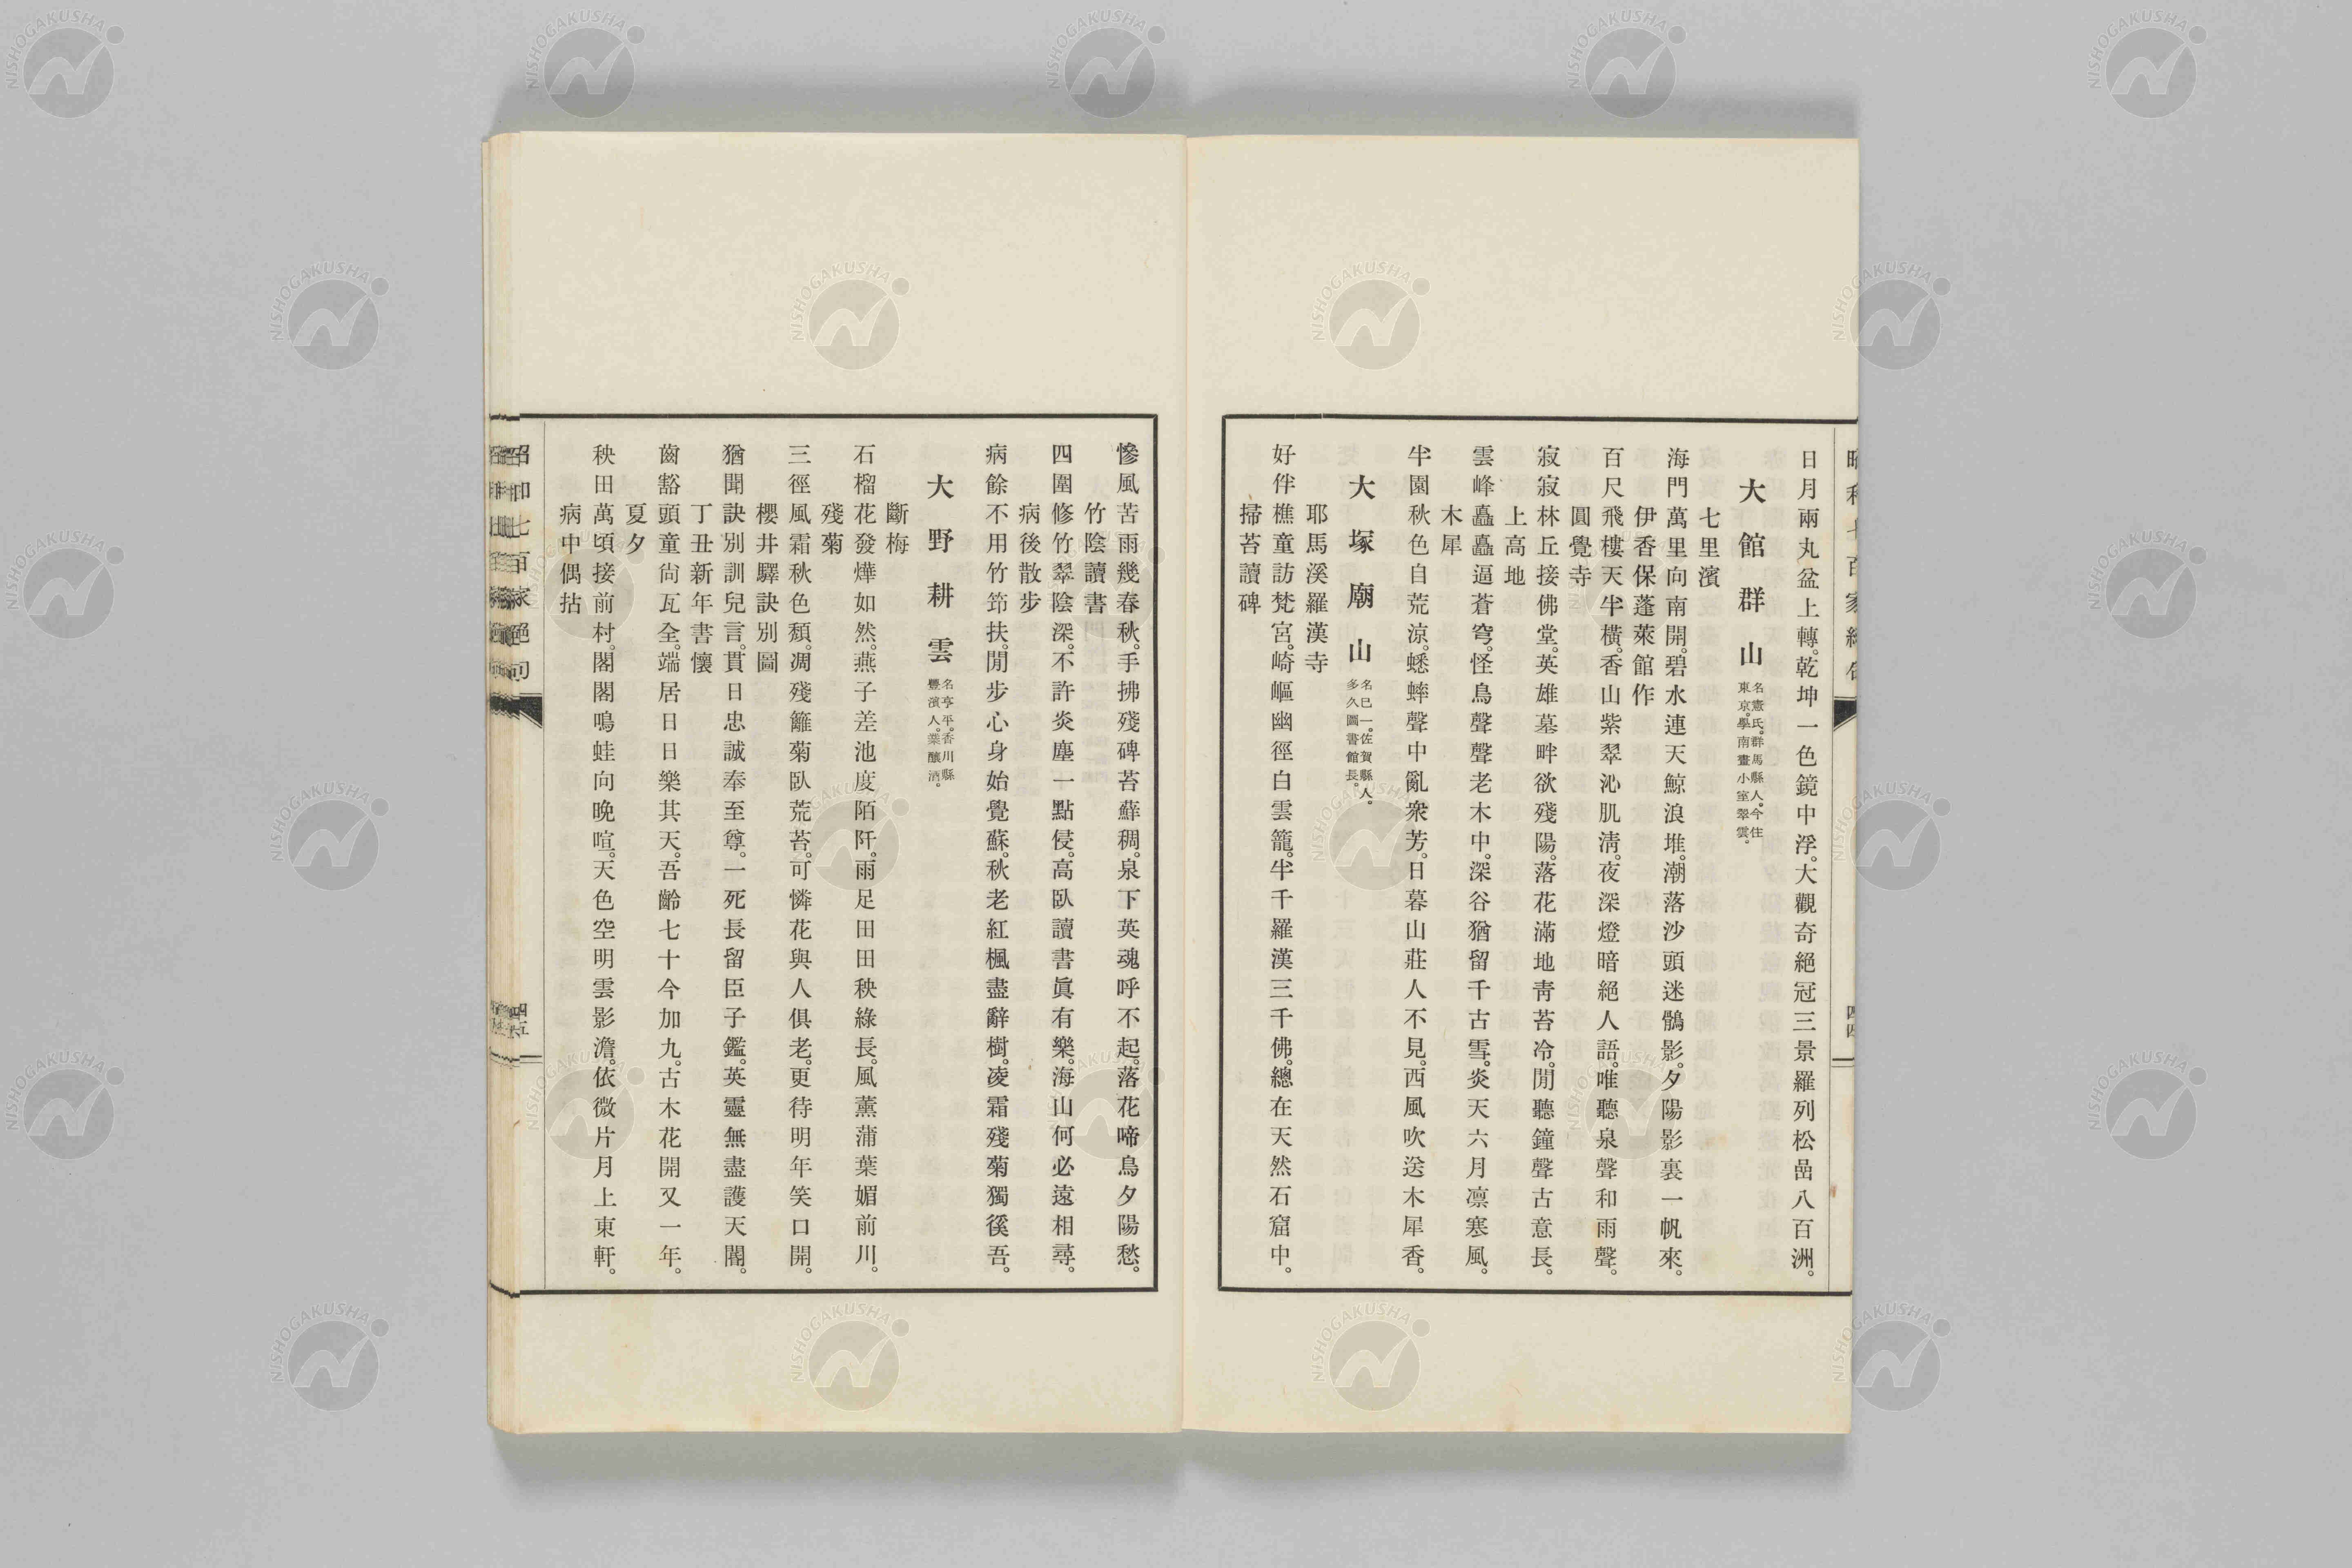 日月兩丸盆上轉。乾坤一色鏡中浮。大觀奇絕冠三景羅列松嵒八百洲。
大館群山
名憲氏。群馬縣人。今住
東京。學南畫小室翠雲。
七里濱
海門萬里向南開。碧水連天鯨浪堆。潮落沙頭迷鶻影。夕陽影裏一帆來。
伊香保蓬萊館作
百尺飛樓天半橫。香山紫翠沁肌淸。夜深燈暗絕人語。唯聽泉聲和雨聲。
圓覺寺
寂寂林丘接佛堂。英雄墓畔欲殘陽。落花滿地靑苔冷。閒聽鐘聲古意長。
上高地
雲峰矗矗逼蒼穹。怪鳥聲聲老木中。深谷猶留千古雪。炎天六月凛寒風。
木犀
半園秋色自荒涼。蟋蟀聲中亂衆芳。日暮山莊人不見。西風吹送木犀香。
大塚廟山
名巳一。佐賀縣人。
多久圖書館長。
耶馬溪羅漢寺
好伴樵童訪梵宮。崎嶇幽徑白雲籠。半千羅漢三千佛。總在天然石窟中。
掃苔讀碑
慘風苦雨幾春秋。手拂殘碑苔蘚稠。泉下英魂呼不起。落花啼鳥夕陽愁。
竹陰讀書
四圍修竹翠陰深。不許炎塵一點侵。高臥讀書眞有樂。海山何必遠相尋。
病後散步
病餘不用竹笻扶。閒步心身始覺蘇。秋老紅楓盡辭樹。凌霜殘菊獨徯吾。
大野耕雲
名亨平。香川縣
豐濱人。業釀酒。
斷梅
石榴花發燁如然。燕子差池度陌阡。雨足田田秧綠長。風薰蒲葉媚前川。
殘菊
三徑風霜秋色頹。凋殘籬菊臥荒苔。可憐花與人俱老。更待明年笑口開。
櫻井驛訣別圖
猶聞訣別訓兒言。貫日忠誠奉至尊。一死長留臣子鑑。英靈無盡護天閽。
丁丑新年書懷
齒豁頭童尙瓦全。端居日日樂其天。吾齡七十今加九。古木花開又一年。
夏夕
秧田萬頃接前村。閣閣鳴蛙向晚喧。天色空明雲影澹。依微片月上東軒。
病中偶拈